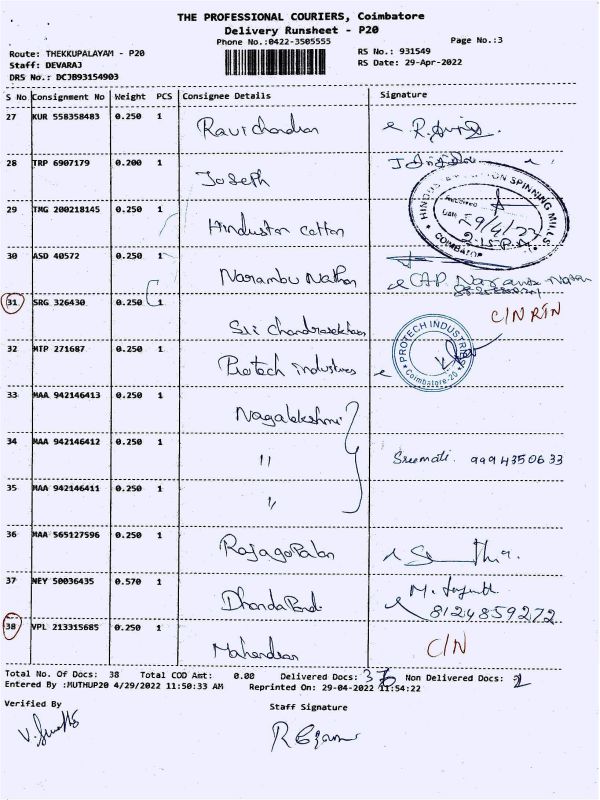 THE PROFESSIONAL COURIERS, Coimbatore
Delivery Runsheet - P20
Phone No.:0422-3505555
Page No.:3
Route: THEKKUPALAYAM - P20
RS No.: 931549
Staff: DEVARAJ
RS Date: 29-Apr-2022
DRS No.: DCJB93154903
S No Consignment No Weight PCS Consignee Details Signature
27 KUR 558358483 0.250 1
Ravichandran
28 TRP 6907179 0.200 1
Joseph
29 TMG 200218145 0.250 1
Hindustan cotton
SPINNING MILLS
29/4/22
2:15 P.M
COIMBATORE
30 ASD 40572 0.250 1
Narambu Nathan
31 SRG 326430 0.250 1
C/N RTN
Sri Chandrasekharan
32 MTP 271687 0.250 1
Protech industries
PROTECH INDUSTRIES
Coimbatore-20
33 MAA 942146413 0.250 1
Nagalakshmi
34 MAA 942146412 0.250 1
" Sreemati. 9994350633
35 MAA 942146411 0.250 1
"
36 MAA 565127596 0.250 1
Rajagopalan
37 NEY 50036435 0.570 1
8124859272
38 VPL 213315685 0.250 1
Mahendran C/N
Total No. Of Docs: 38 Total COD Amt: 0.00 Delivered Docs: 36 Non Delivered Docs: 2
Entered By :MUTHUP20 4/29/2022 11:50:33 AM Reprinted On: 29-04-2022 11:54:22
Verified By
Staff Signature